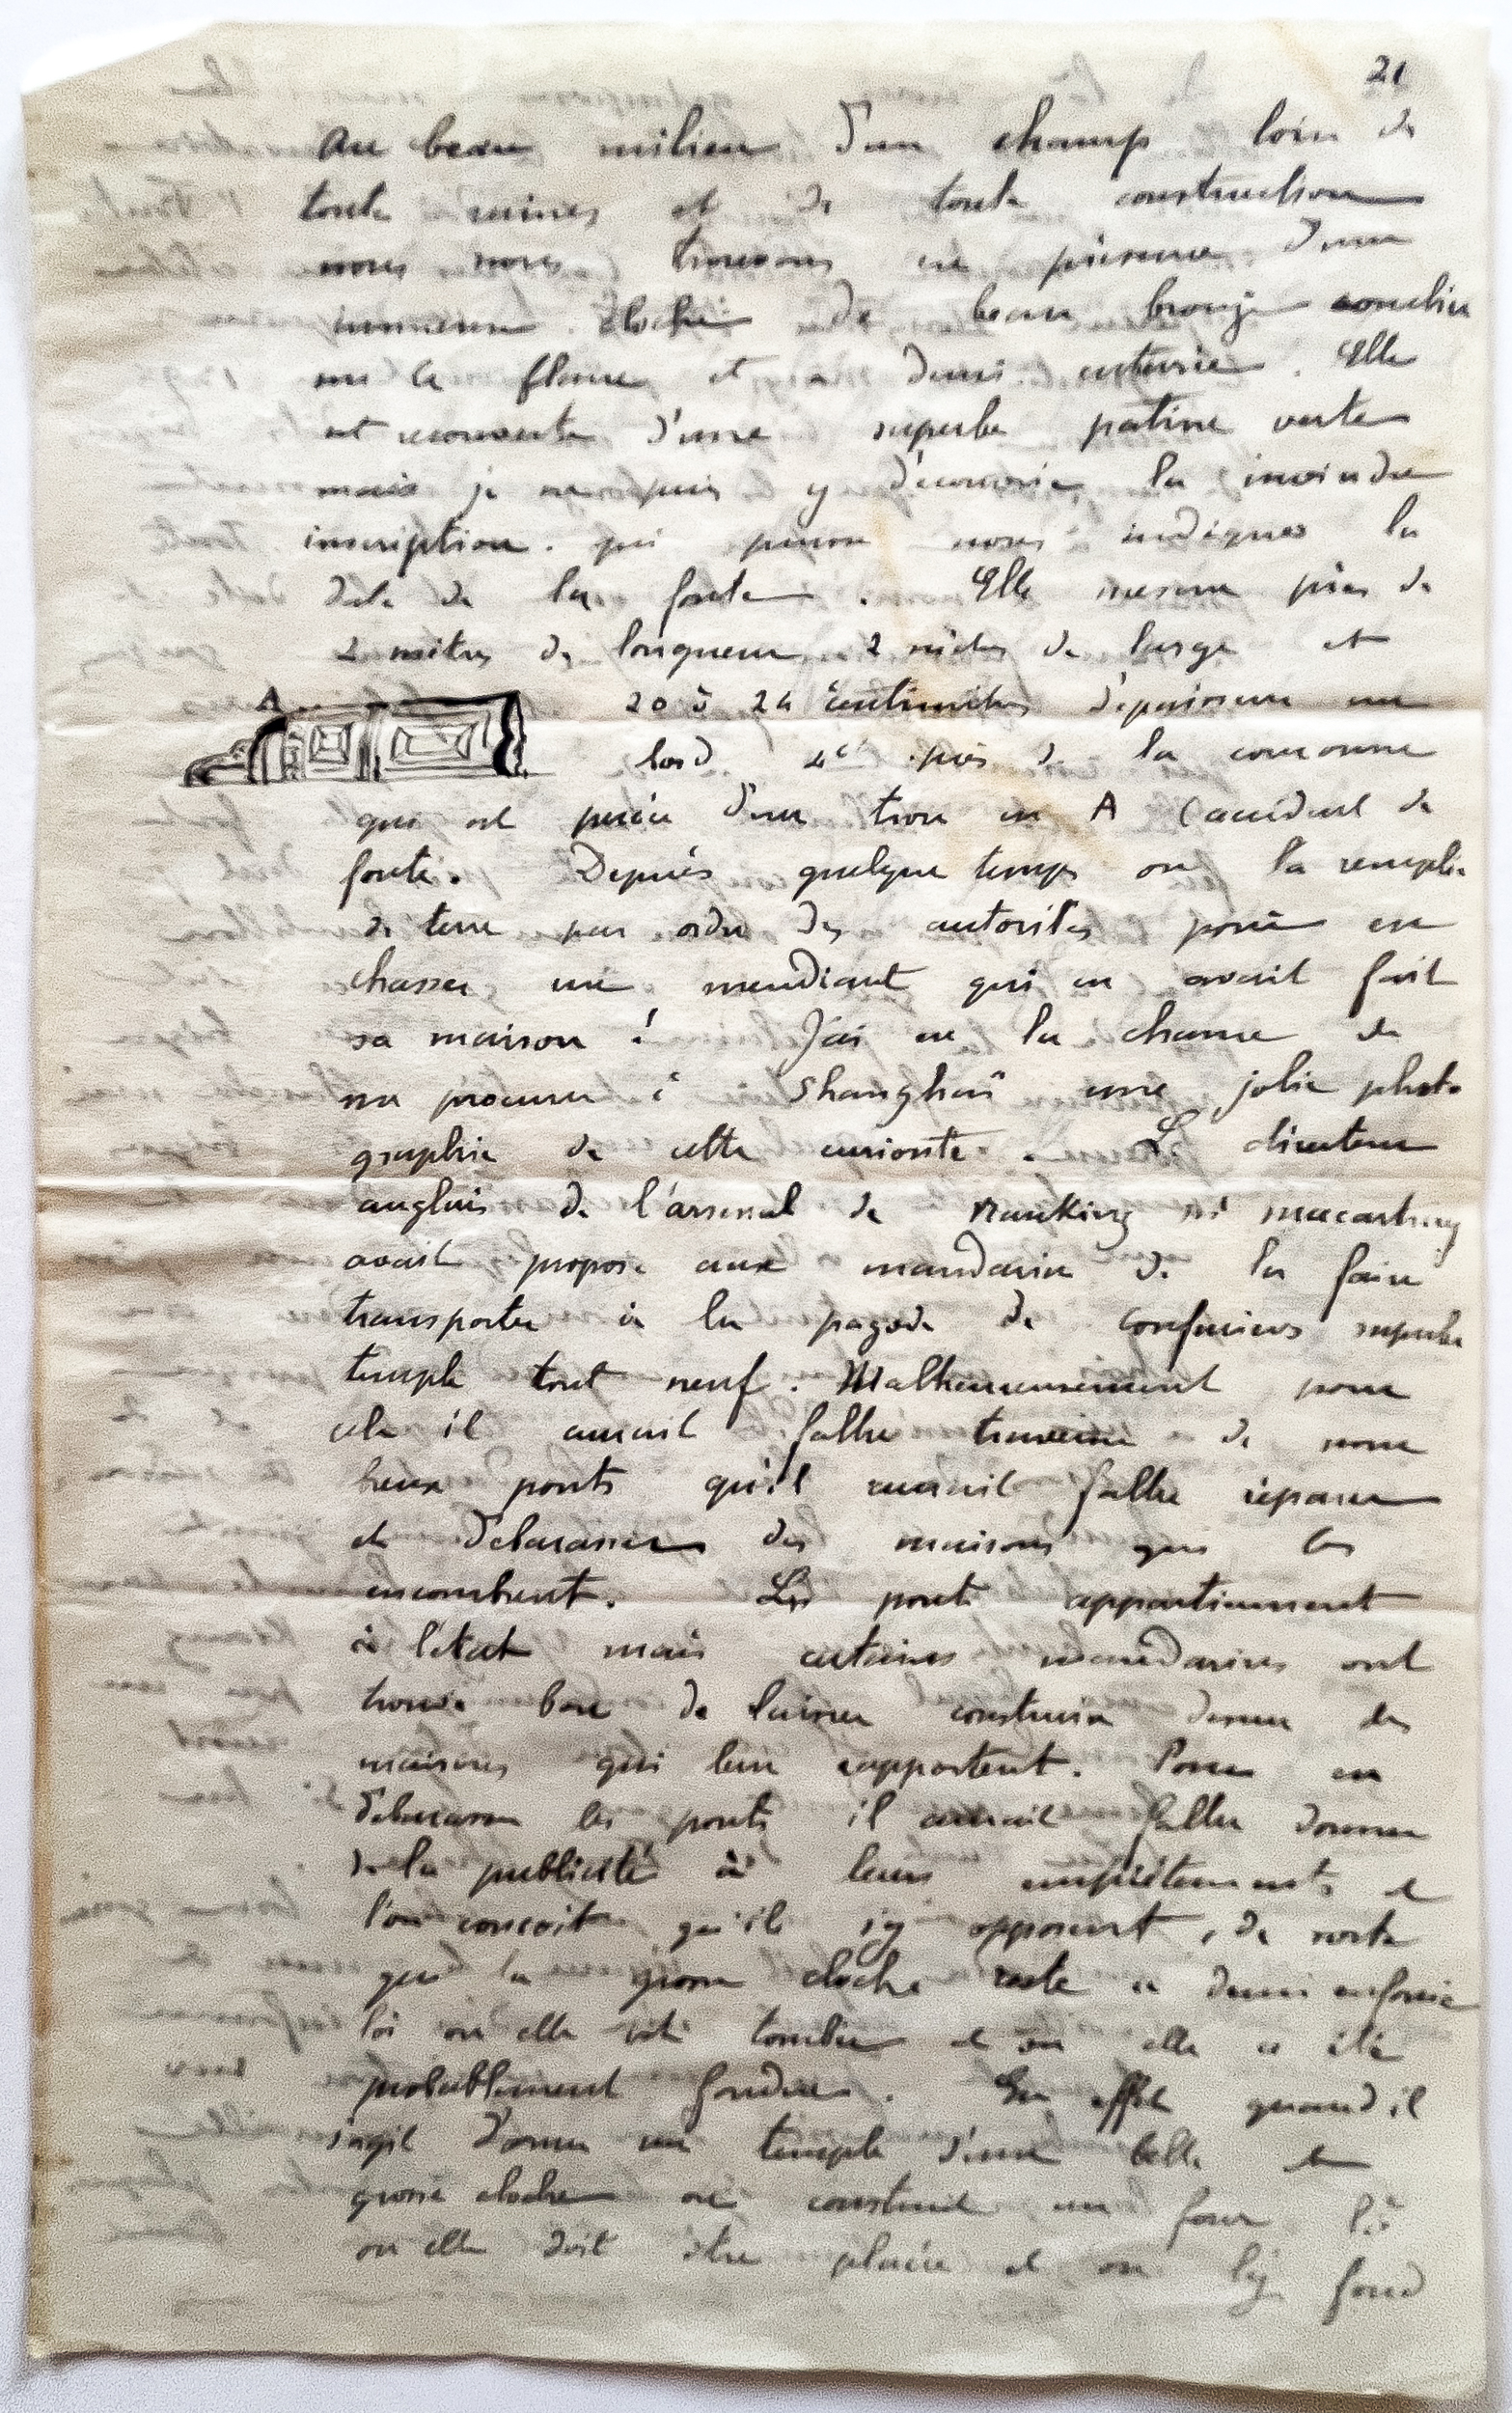 21
Au beau milieu d'un champ loin de
toute ruines et de toute construction
nous nous trouvons en présence d'une
immense cloche de beau bronze couchée
sur le flanc et a demi enterrée. Elle
est recouverte d'une superbe patine verte
mais je ne puis y découvrir la moindre
inscription qui puisse nous indiquer la
date de la fonte. Elle mesure près de
2 mètres de longueur 2 mètres de large et
A
20 à 24 centimètres d'épaisseur au
bord. près de la couronne
qui est percée d'un trou en A (accident de
fonte. Depuis quelque temps on l'a remplie
de terre par ordre des autorités pour en
chasser un mendiant qui en avait fait
sa maison ! J'ai eu la chance de
me procurer à Shanghaï une jolie photo
graphie de cette curiosité. Le directeur
anglais de l'arsenal de Nanking mr macartney
avait proposé aux mandarin de la faire
transporter à la pagode de Confucius superbe
temple tout neuf. Malheureusement pour
cela il aurait fallu traverser de nom
breux ponts qu'il aurait fallu réparer
et débarasser des maisons qui les
encombrent. Les ponts appartiennent
à l'état mais certains mandarins ont
trouvé bon de laisser construire dessus des
maisons qui leur rapportent. Pour en
débarasser les ponts il aurait fallu donner
de la publicité à leurs empiètements et
l'on conçoit qu'ils s'y opposent, de sorte
que la grosse cloche reste a demi enfouie
là ou elle est tombée et ou elle a été
probablement fondue. En effet quand il
s'agit d'orner un temple d'une belle et
grosse cloche on construit un four là
ou elle doit être placée et on l'y fond